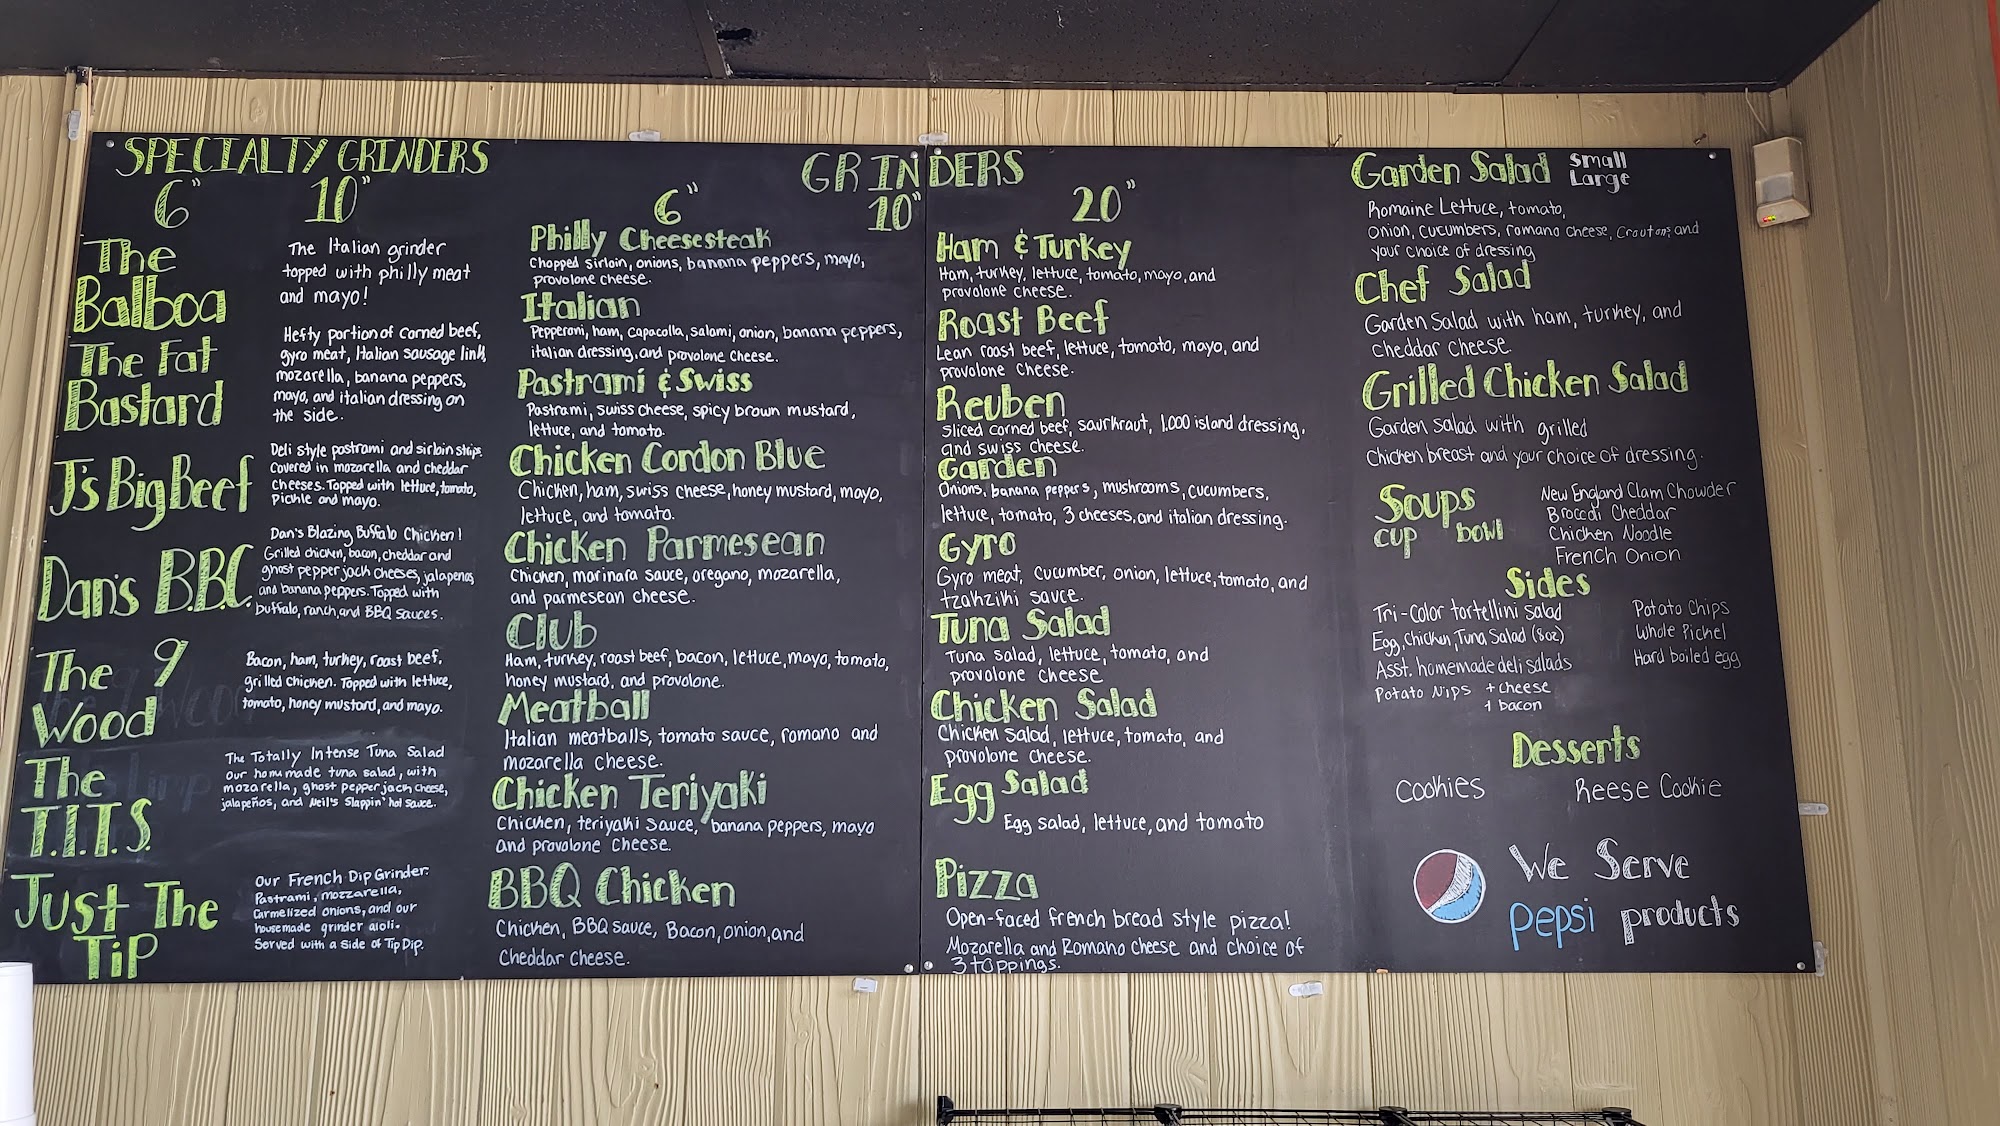 SPECIALTY GRINDERS
6" 10"
The Balboa
The Italian grinder
topped with philly meat
and mayo!
The Fat Bastard
Hefty portion of corned beef,
gyro meat, Italian sausage link,
mozarella, banana peppers,
mayo, and italian dressing on
the side.
J's Big Beef
Deli style pastrami and sirloin strips
covered in mozarella and cheddar
cheeses. Topped with lettuce, tomato,
pickle and mayo.
Dan's B.B.C.
Dan's Blazing Buffalo Chicken!
Grilled chicken, bacon, cheddar and
ghost pepper jack cheeses, jalapenos
and banana peppers. Topped with
buffalo, ranch, and BBQ sauces.
The 9 Wood
Bacon, ham, turkey, roast beef,
grilled chicken. Topped with lettuce,
tomato, honey mustard, and mayo.
The T.I.T.S.
The Totally Intense Tuna Salad
our homemade tuna salad, with
mozarella, ghost pepper jack cheese,
jalapeños, and Neil's Slappin' hot sauce.
Just The Tip
Our French Dip Grinder.
Pastrami, mozzarella,
Carmelized onions, and our
housemade grinder aioli.
Served with a side of Tip Dip.
GRINDERS
6" 10" 20"
Philly Cheesesteak
Chopped sirloin, onions, banana peppers, mayo,
provolone cheese.
Italian
Pepperoni, ham, capacolla, salami, onion, banana peppers,
italian dressing, and provolone cheese.
Pastrami & Swiss
Pastrami, swiss cheese, spicy brown mustard,
lettuce, and tomato.
Chicken Cordon Blue
Chicken, ham, swiss cheese, honey mustard, mayo,
lettuce, and tomato.
Chicken Parmesean
Chicken, marinara sauce, oregano, mozarella,
and parmesean cheese.
Club
Ham, turkey, roast beef, bacon, lettuce, mayo, tomato,
honey mustard, and provolone.
Meatball
Italian meatballs, tomato sauce, romano and
mozarella cheese.
Chicken Teriyaki
Chicken, teriyaki sauce, banana peppers, mayo
and provolone cheese.
BBQ Chicken
Chicken, BBQ sauce, Bacon, onion, and
Cheddar cheese.
Ham & Turkey
Ham, turkey, lettuce, tomato, mayo, and
provolone cheese.
Roast Beef
Lean roast beef, lettuce, tomato, mayo, and
provolone cheese.
Reuben
Sliced corned beef, saurkraut, 1,000 island dressing,
and swiss cheese.
Garden
Onions, banana peppers, mushrooms, cucumbers,
lettuce, tomato, 3 cheeses, and italian dressing.
Gyro
Gyro meat, cucumber, onion, lettuce, tomato, and
tzakziki sauce.
Tuna Salad
Tuna salad, lettuce, tomato, and
provolone cheese
Chicken Salad
Chicken Salad, lettuce, tomato, and
provolone cheese.
Egg Salad
Egg salad, lettuce, and tomato
Pizza
Open-faced french bread style pizza!
Mozarella and Romano cheese and choice of
3 toppings.
Garden Salad Small
Large
Romaine Lettuce, tomato,
onion, cucumbers, romano cheese, Croutons and
your choice of dressing
Chef Salad
Garden Salad with ham, turkey, and
cheddar cheese.
Grilled Chicken Salad
Garden salad with grilled
Chicken breast and your choice of dressing.
Soups
cup bowl
New England Clam Chowder
Broccoli Cheddar
Chicken Noodle
French Onion
Sides
Tri-color tortellini salad
Egg, Chicken, Tuna Salad (8oz)
Asst. homemade deli salads
Potato Nips + cheese
+ bacon
Potato Chips
Whole Pickel
Hard boiled egg
Desserts
Cookies Reese Cookie
We Serve
pepsi products